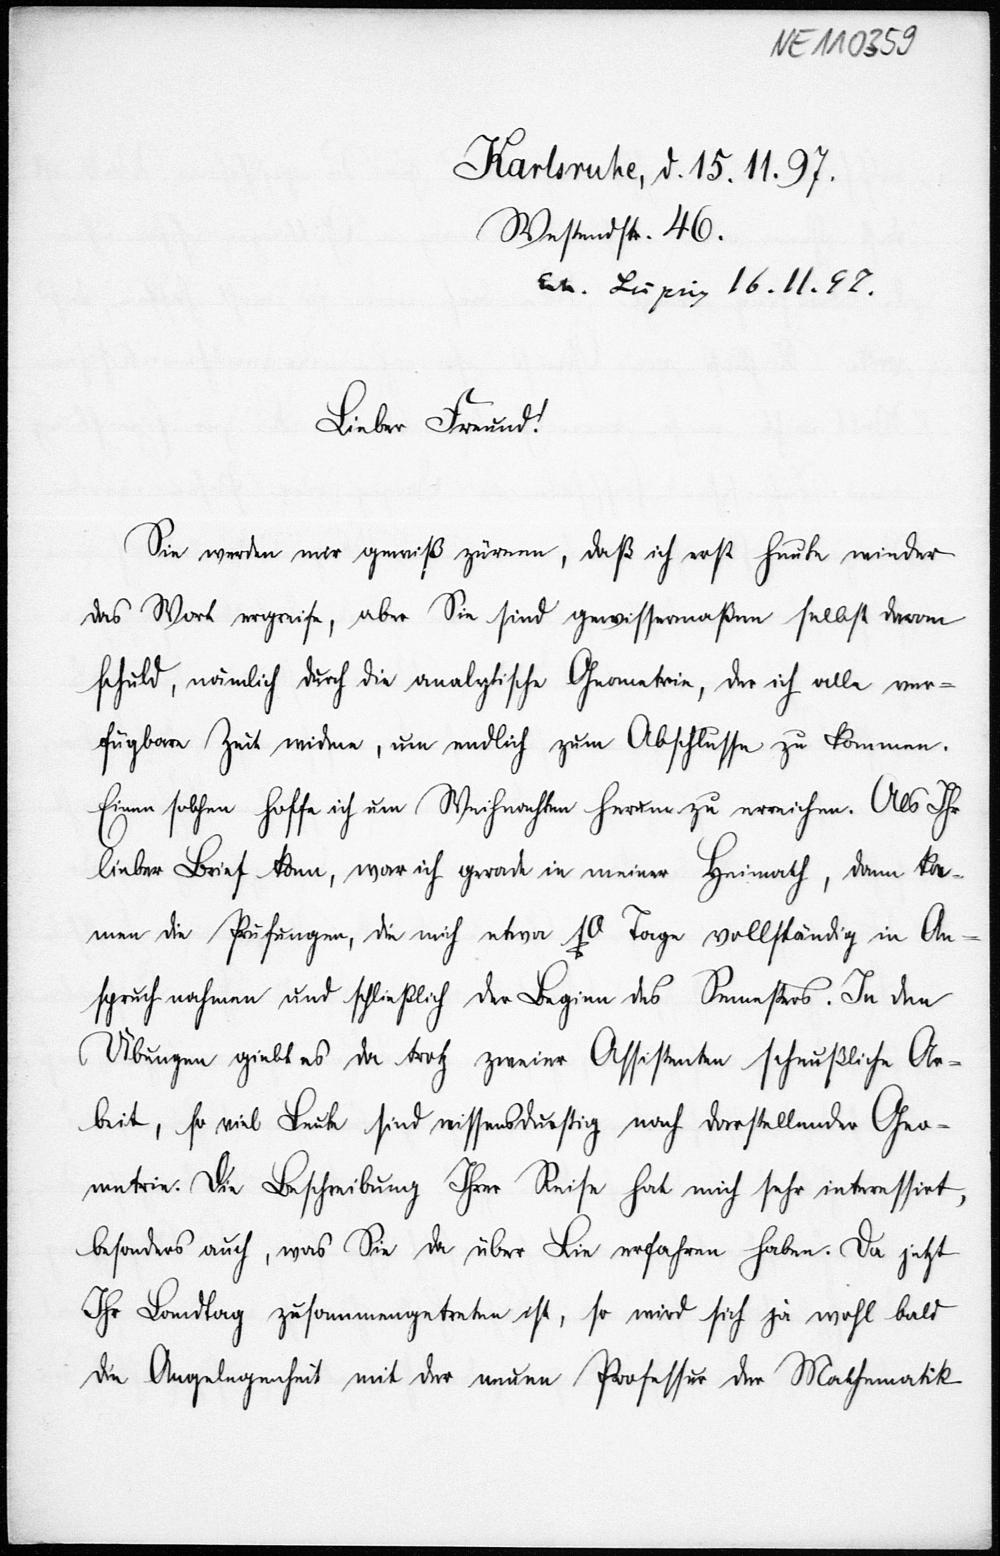 NE110359
Karlsruhe, d. 15. 11. 97.
Westendstr. 46.
Erh. Leipzig 16. 11. 97.
Lieber Freund!
Sie werden mir gewiß zürnen, daß ich erst heute wieder
das Wort ergreife, aber Sie sind gewissermaßen selbst daran
schuld, nämlich durch die analytische Geometrie, der ich alle ver=
fügbare Zeit widme, um endlich zum Abschlusse zu kommen.
Einen solchen hoffe ich um Weihnachten herum zu erreichen. Als Ihr
lieber Brief kam, war ich gerade in meiner Heimath, dann ka-
men die Prüfungen, die mich etwa 10 Tage vollständig in An=
spruch nahmen und schließlich der Beginn des Semesters. In den
Übungen giebt es da trotz zweier Assistenten scheußliche Ar=
beit, so viel Leute sind wissensdurstig nach darstellender Geo=
metrie. Die Beschreibung Ihrer Reise hat mich sehr interessirt,
besonders auch, was Sie da über Lie erfahren haben. Da jetzt
Ihr Landtag zusammengetreten ist, so wird sich ja wohl bald
die Angelegenheit mit der neuen Professur der Mathematik